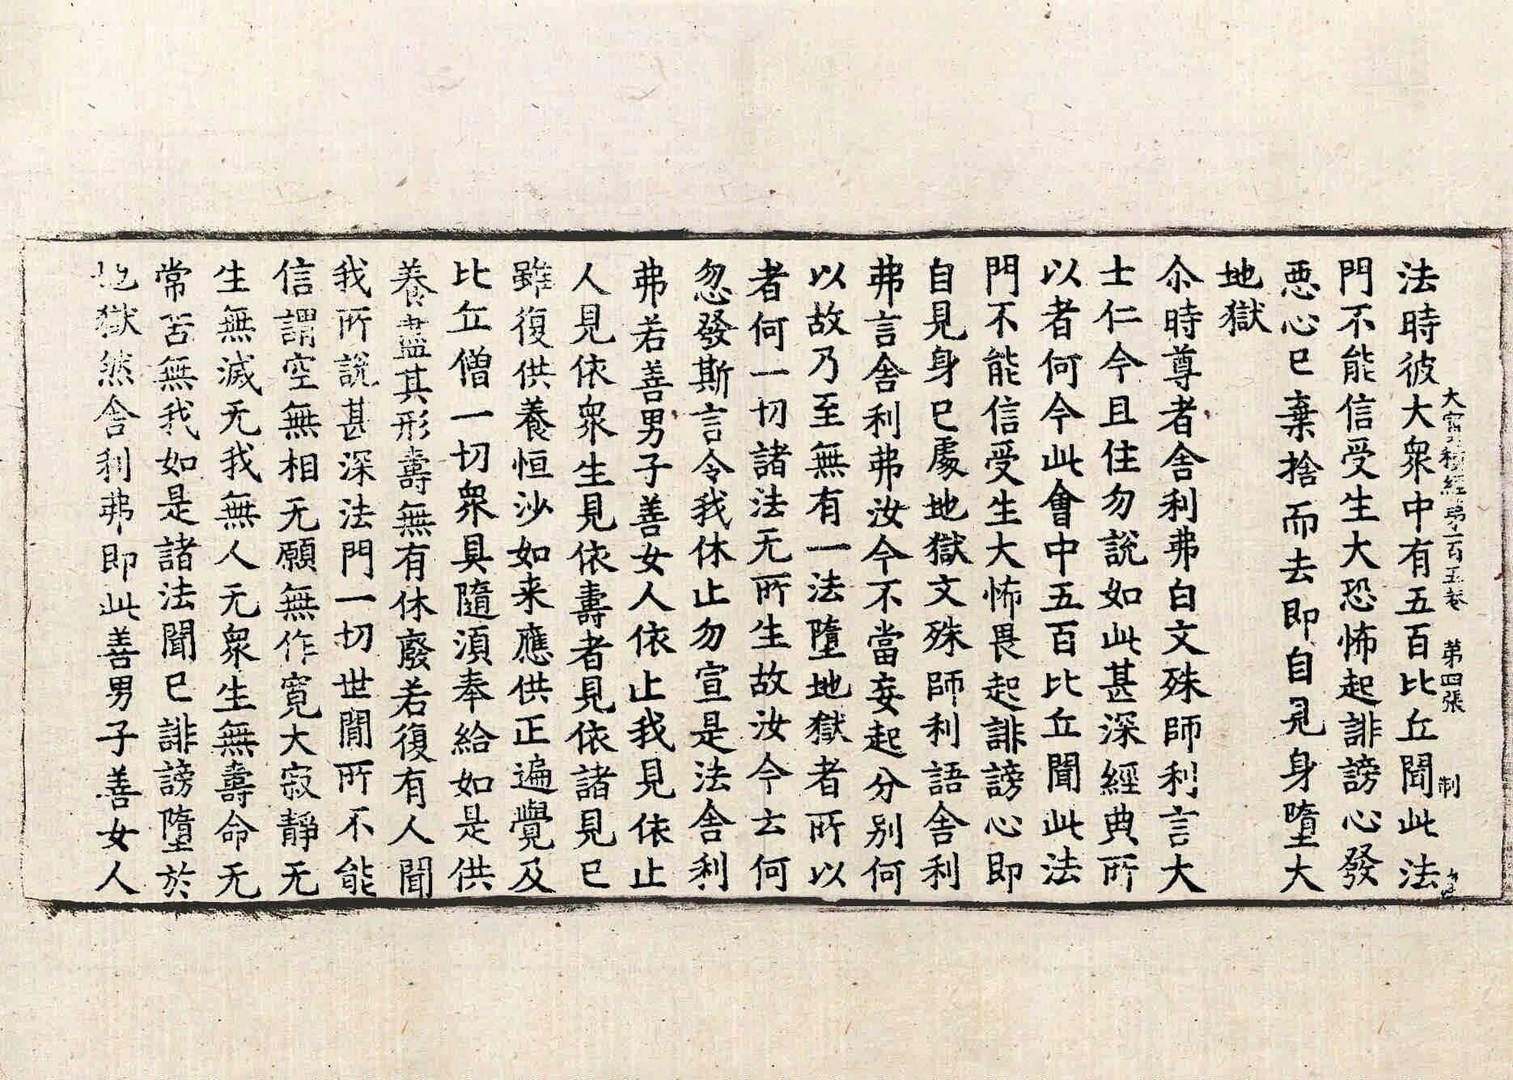 大寶積經第一百五卷 第四張 制
法時彼大衆中有五百比丘聞此法
門不能信受生大恐怖起誹謗心發
惡心已棄捨而去即自見身墮大
地獄
尒時尊者舍利弗白文殊師利言大
士仁今且住勿說如此甚深經典所
以者何今此會中五百比丘聞此法
門不能信受生大怖畏起誹謗心即
自見身已處地獄文殊師利語舍利
弗言舍利弗汝今不當妄起分別何
以故乃至無有一法墮地獄者所以
者何一切諸法无所生故汝今云何
忽發斯言令我休止勿宣是法舍利
弗若善男子善女人依止我見依止
人見依衆生見依壽者見依諸見已
雖復供養恒沙如来應供正遍覺及
比丘僧一切衆具隨須奉給如是供
養盡其形壽無有休廢若復有人聞
我所說甚深法門一切世閒所不能
信謂空無相无願無作寛大寂靜无
生無滅无我無人无衆生無壽命无
常苦無我如是諸法聞已誹謗墮於
地獄然舍利弗即此善男子善女人